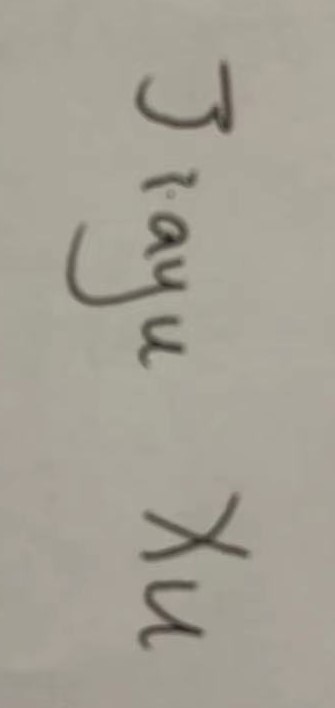 Jiayu Xu